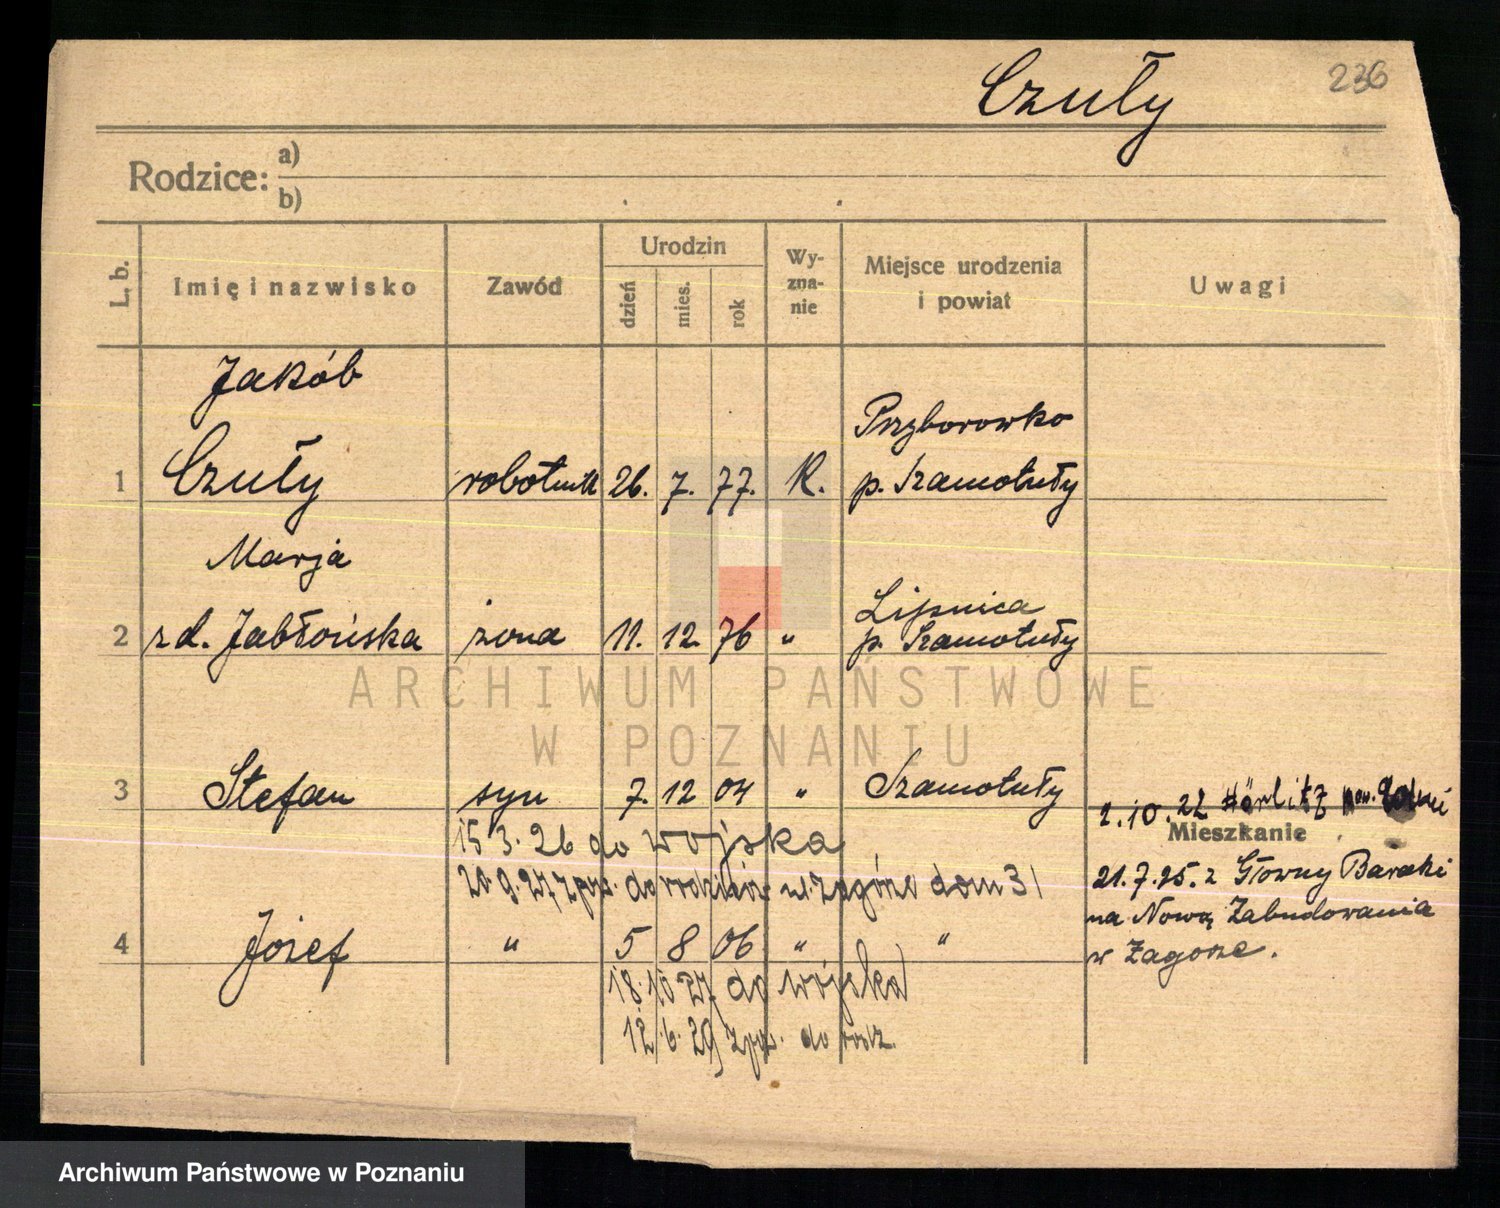 Czuły
236
Rodzice: a)
b)
L. b.
Imię i nazwisko
Zawód
Urodzin
dzień
mies.
rok
Wy-
zna-
nie
Miejsce urodzenia
i powiat
Uwagi
Jakób
Przyborowko
1 Czuły robotnik 26. 7. 77. K. p. Szamotuły
Marja
Lipnica
2 z d. Jabłońska żona 11. 12. 76 " p. Szamotuły
ARCHIWUM PAŃSTWOWE
W POZNANIU
3 Stefan syn 7. 12 04 " Szamotuły
2.10.22 Hörlitz pow.
Mieszkanie
15 3. 26 do wojska
20. 9. 27 z pow. do rodziców w Zagórze dom 31
21.7.25. z Główny Baraki
na Nową Zabudowania
w Zagorze.
4 Józef " 5 8 06 " "
18. 10 27 do wojska
12. 6. 29 z pow. do rodz.
Archiwum Państwowe w Poznaniu